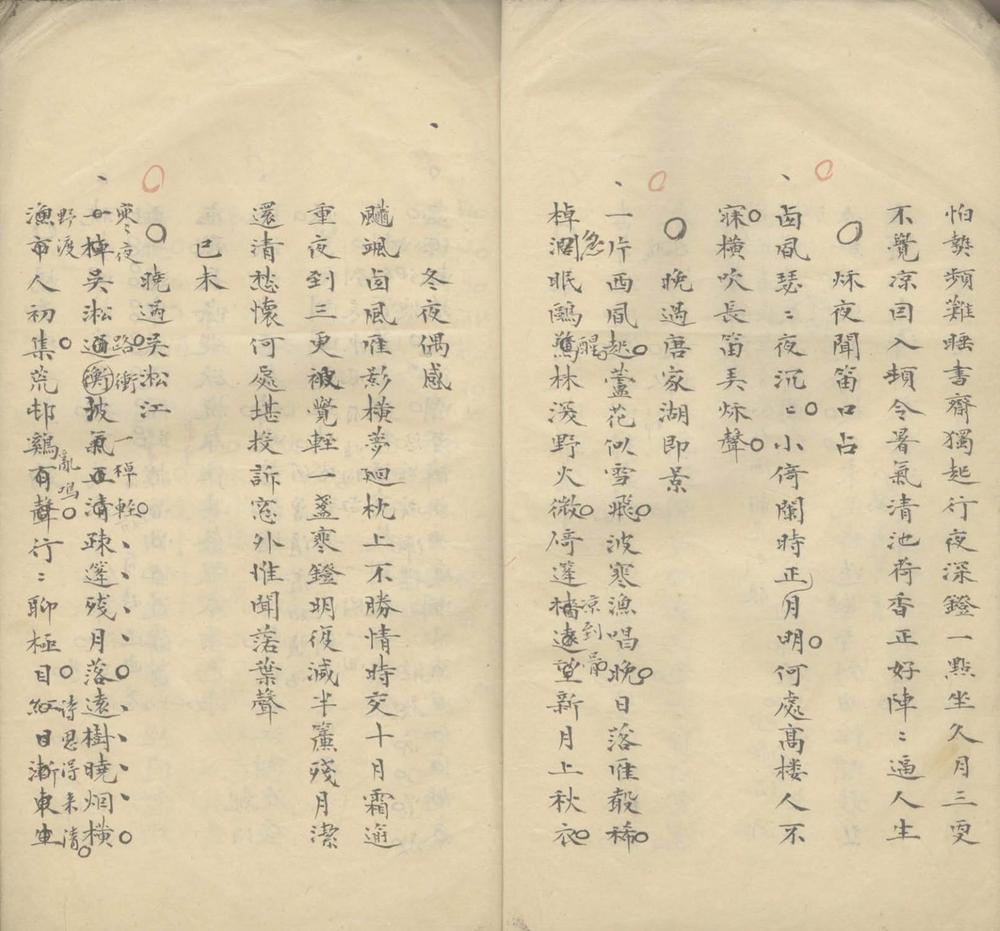 怕熱頻難睡書齋獨起行夜深鐙一點坐久月三更
不覺凉因入頓令暑氣清池荷香正好陣〻逼人生
秌夜聞笛口占
卤風瑟〻夜沉〻小倚闌時正月明何處高楼人不
寐橫吹長笛弄秌聲
晚過唐家湖即景
一片西風起蘆花似雪飛波寒漁唱晚日落雁聲稀
急
醒
凉到骨
棹濶眠鷗驚林深野火微倚篷樯遠望新月上秋衣
冬夜偶感
颸颯卤風雁影橫夢迴枕上不勝情時交十月霜逾
重夜到三更被覺輕一盞寒鐙明復減半簾殘月潔
還清愁懷何處堪投訴窓外惟聞落葉聲
己未
曉過吳淞江
寒冬夜路衝一棹輕
一棹吳淞通衝披氣正清疎篷残月落遠樹曉烟橫
野渡
亂鳴
诗思得来清
漁市人初集荒邨鷄有聲行〻聊極目紅日漸東生